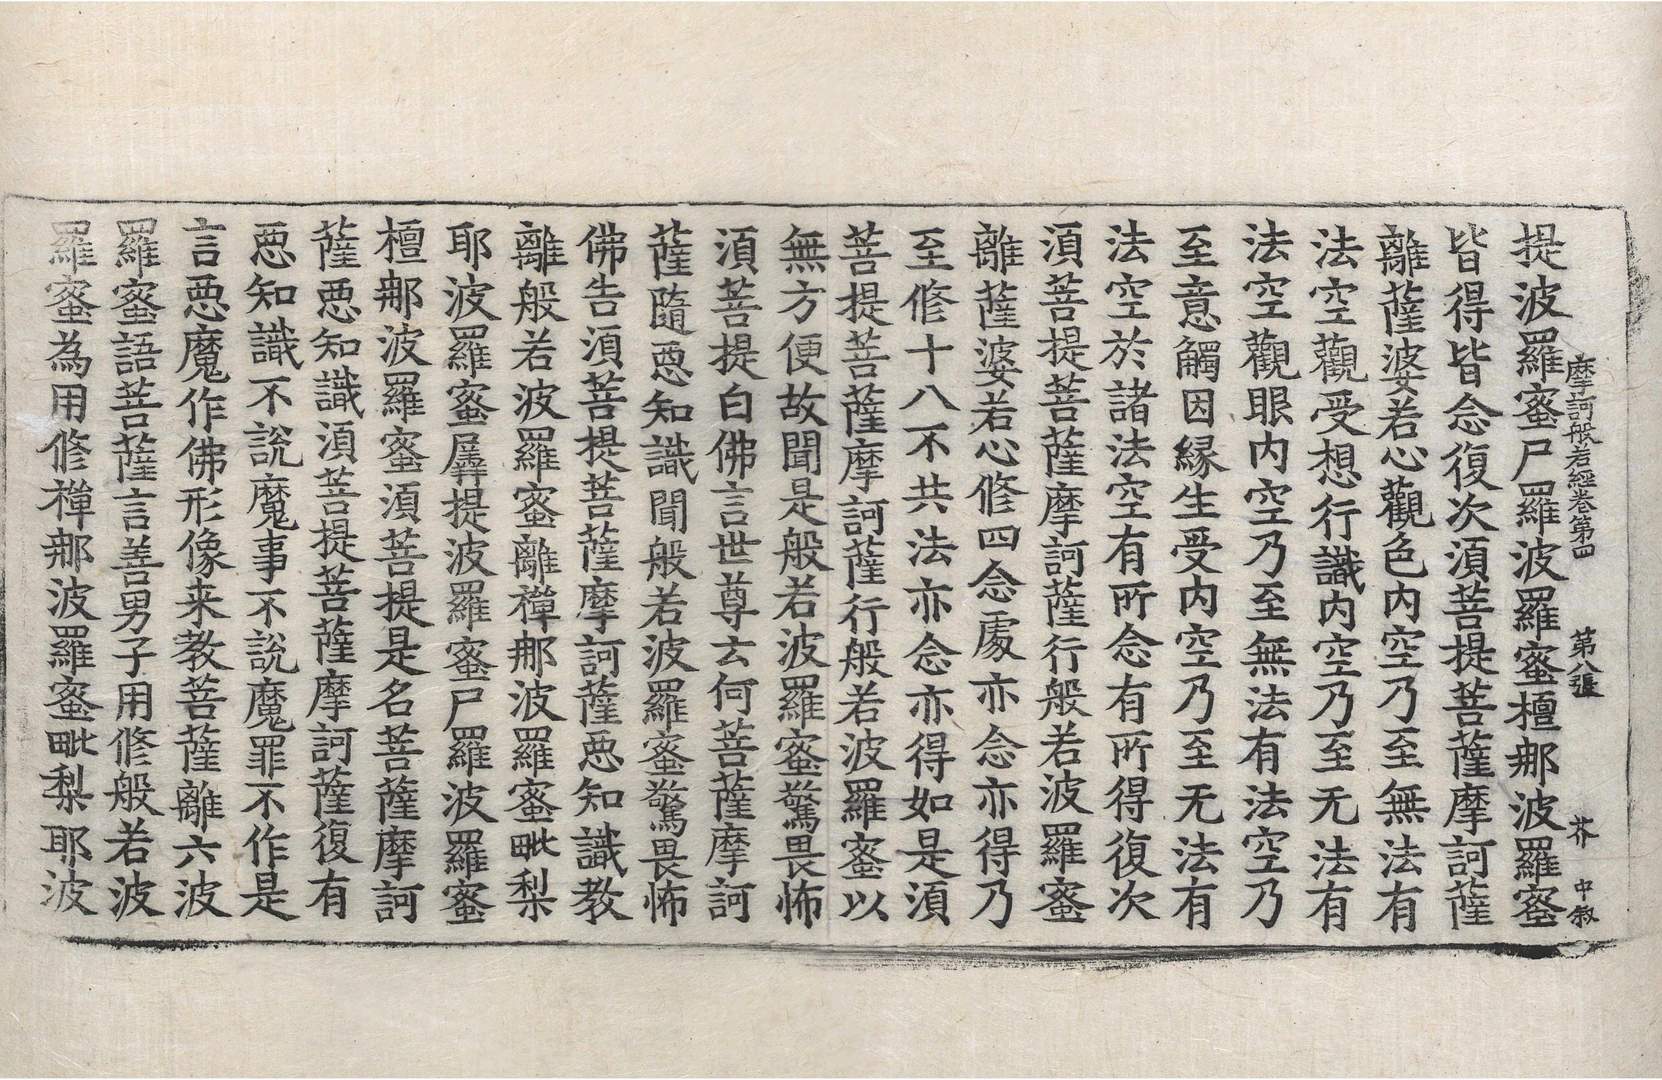 摩訶般若經卷第四 第八張 芥 中叔
提波羅蜜尸羅波羅蜜檀那波羅蜜
皆得皆念復次須菩提菩薩摩訶薩
離薩婆若心觀色内空乃至無法有
法空觀受想行識内空乃至无法有
法空觀眼内空乃至無法有法空乃
至意觸因縁生受内空乃至无法有
法空於諸法空有所念有所得復次
須菩提菩薩摩訶薩行般若波羅蜜
離薩婆若心修四念處亦念亦得乃
至修十八不共法亦念亦得如是須
菩提菩薩摩訶薩行般若波羅蜜以
無方便故聞是般若波羅蜜驚畏怖
須菩提白佛言世尊云何菩薩摩訶
薩隨惡知識聞般若波羅蜜驚畏怖
佛告須菩提菩薩摩訶薩惡知識教
離般若波羅蜜離禪那波羅蜜毗梨
耶波羅蜜羼提波羅蜜尸羅波羅蜜
檀那波羅蜜須菩提是名菩薩摩訶
薩惡知識須菩提菩薩摩訶薩復有
惡知識不說魔事不說魔罪不作是
言惡魔作佛形像来教菩薩離六波
羅蜜語菩薩言善男子用修般若波
羅蜜為用修禪那波羅蜜毗梨耶波